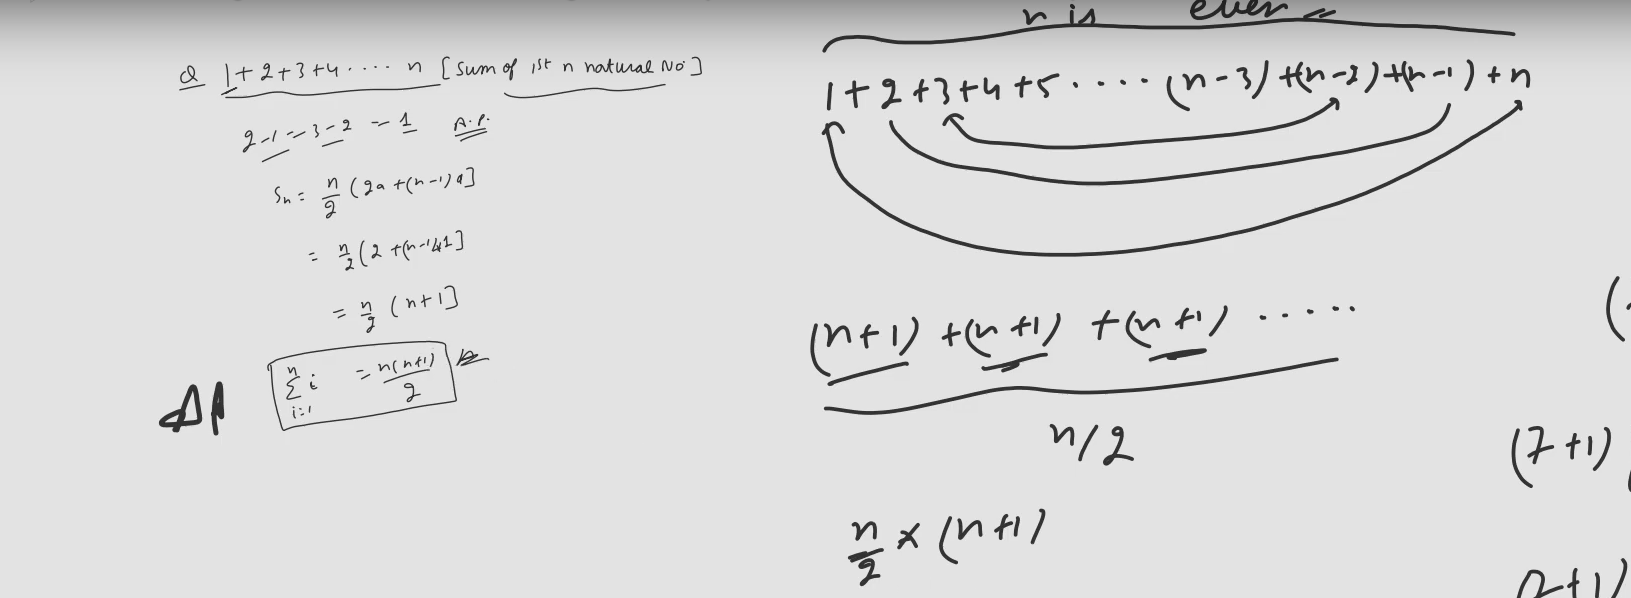 Q 1+2+3+4.... n [Sum of 1st n natural No.]
2-1 = 3-2 = 1 A.P.
Sn = n/2 (2a+(n-1)d]
= n/2 (2+(n-1)x1]
= n/2 (n+1]
n∑i=1 i = n(n+1)/2
n is even
1+2+3+4+5.....(n-3)+(n-2)+(n-1)+n
(n+1) +(n+1) +(n+1) .....
n/2
n/2 x (n+1)
(
(7+1)
+1)